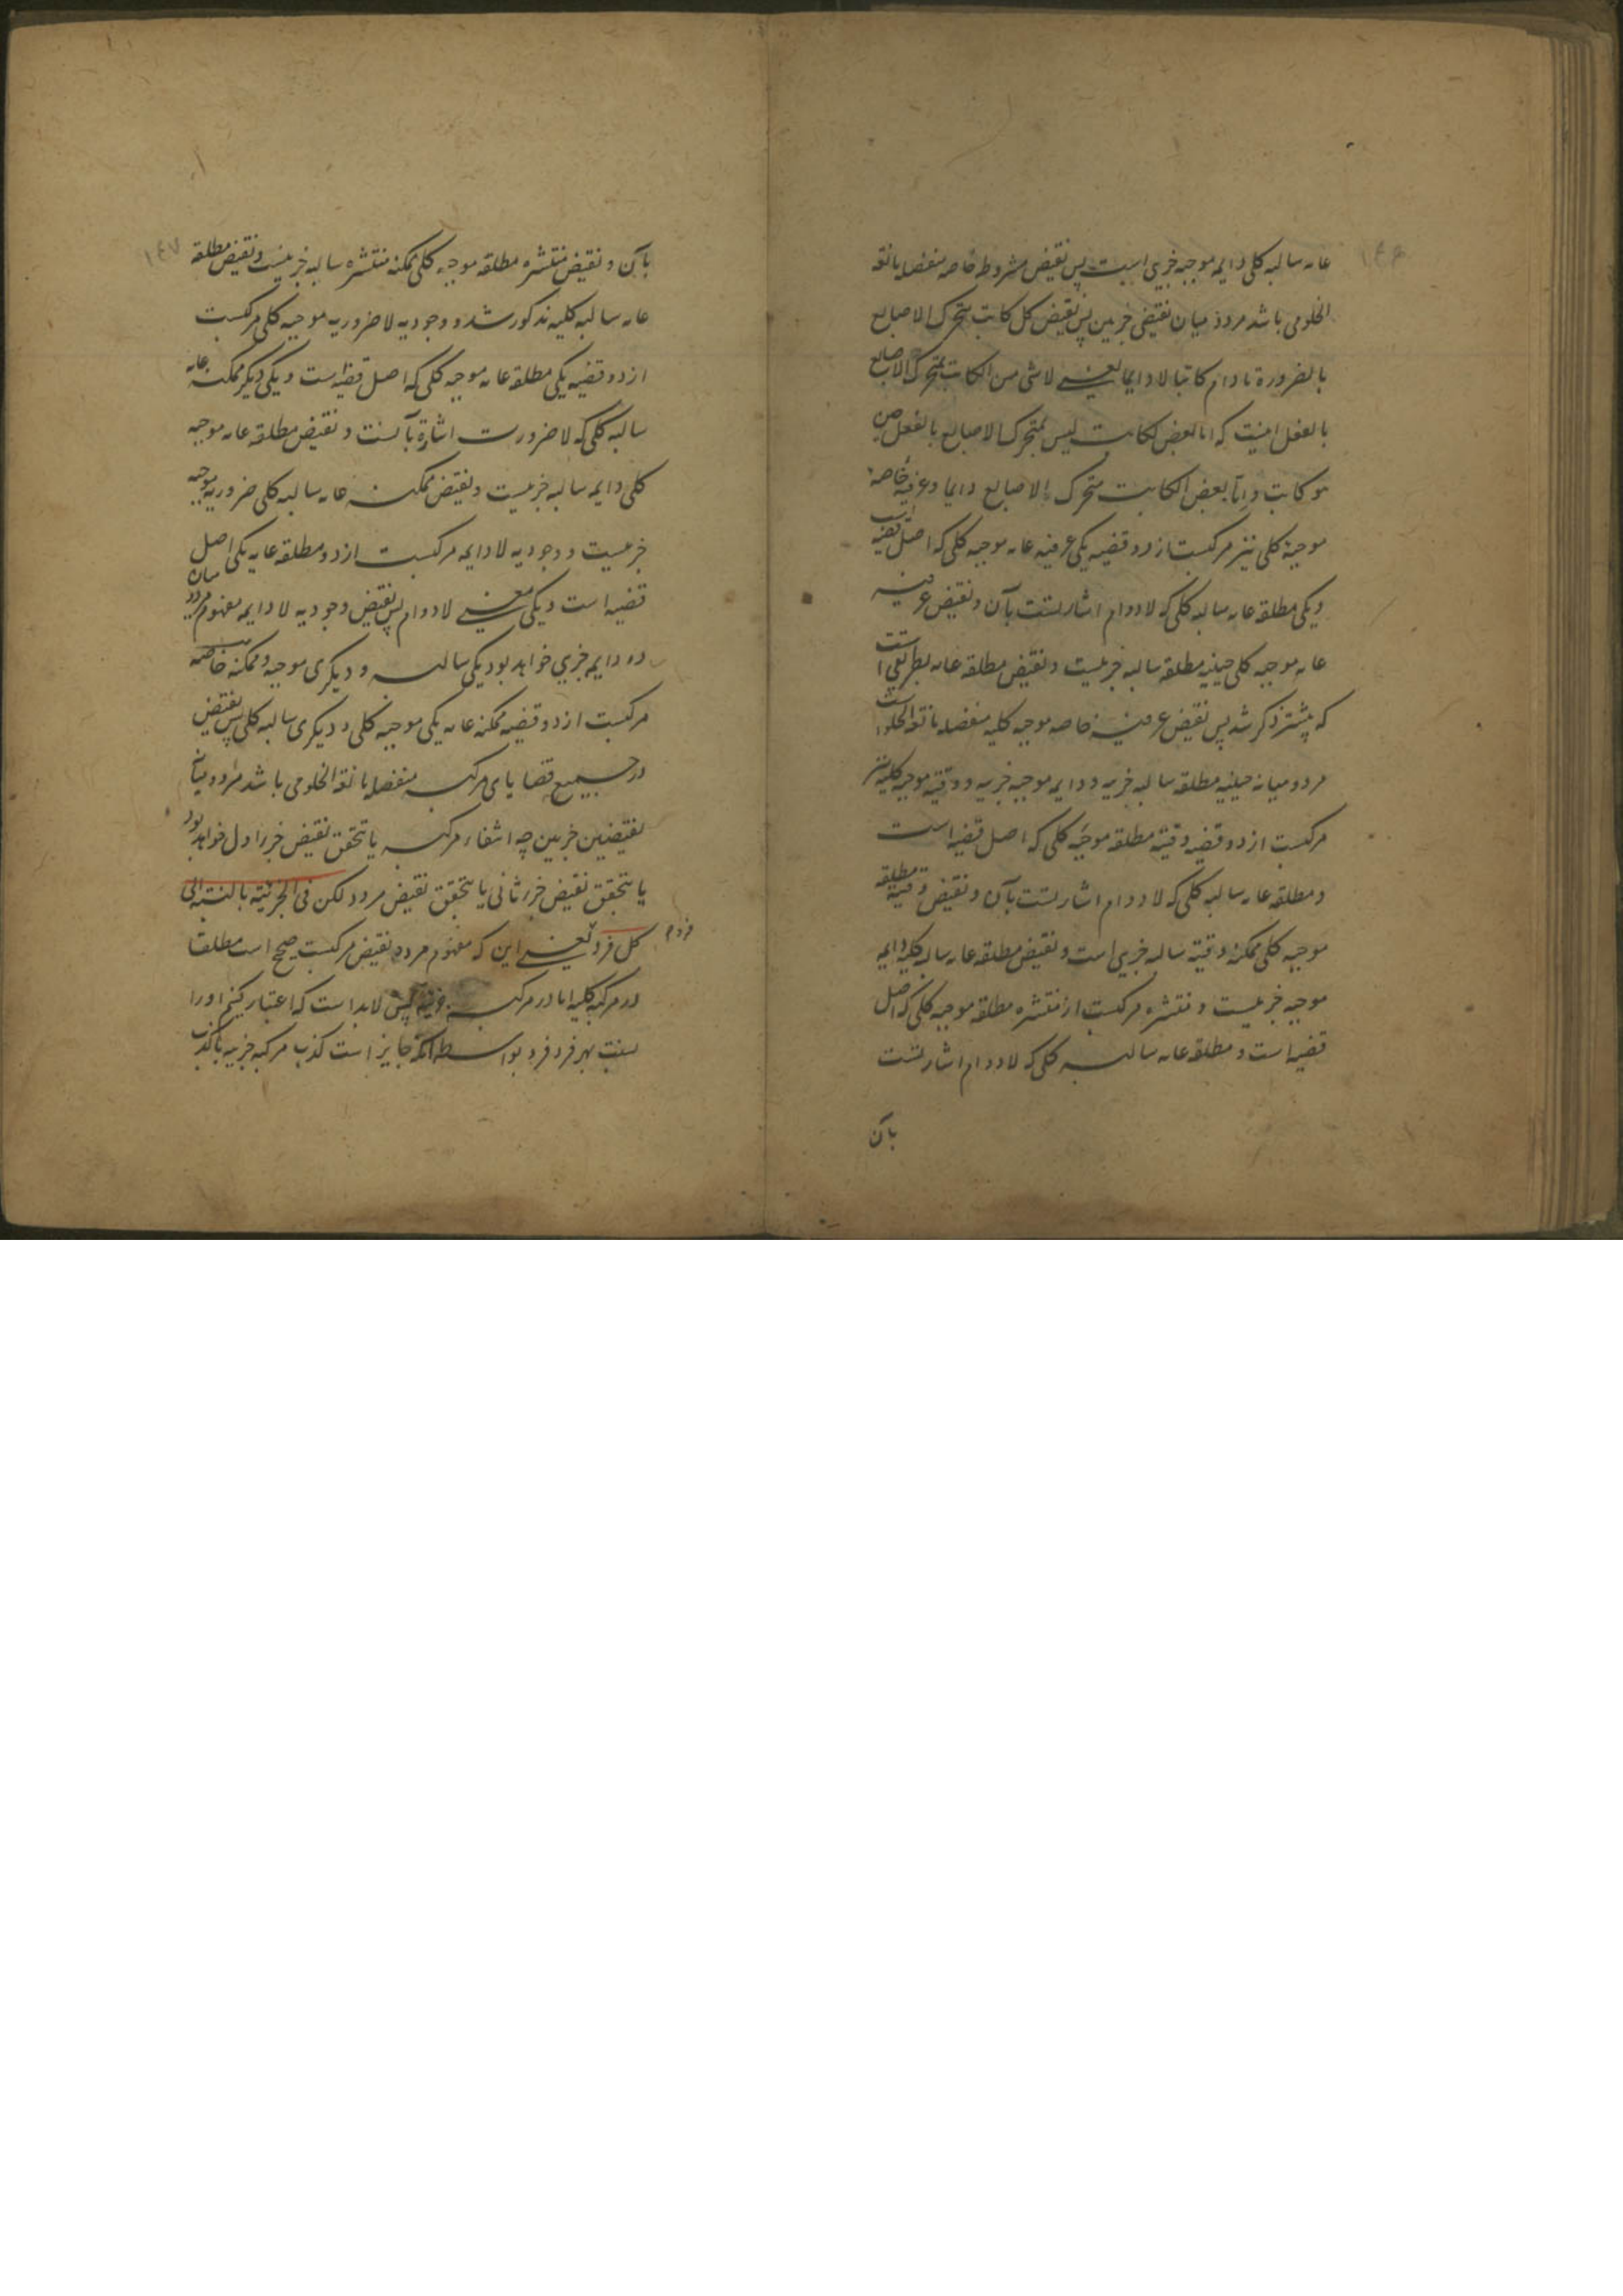 ۱۴۶
عامه سالبه کلی دایمه موجبه جزیی است پس نقیض مشروطه خاصه منفصله مانعة
الخلومی باشد مردد میان نقیضی جزیین پس نقیض کل کاتب متحرک الاصابع
بالضرورة مادام کاتبا لا دایما یعنی لا شی من الکاتب بمتحرک الاصابع
بالفعل اینست که اما بعض الکاتب لیس بمتحرک الاصابع بالفعل حین
هو کاتب و اما بعض الکاتب متحرک الاصابع دایما و عرفیه خاصه
موجبه کلی نیز مرکبست از دو قضیه یکی عرفیه عامه موجبه کلی که اصل قضیه است
و یکی مطلقه عامه سالبه کلی که لادوام اشارتست بآن و نقیض عرفیه
عامه موجبه کلی حینیه مطلقه سالبه جزییست و نقیض مطلقه عامه بطریقی است
که پیشتر ذکر شد پس نقیض عرفیه خاصه موجبه کلیه منفصله مانعة الخلو است
مردد میانه حینیه مطلقه سالبه جزییه و دایمه موجبه جزییه و وقتیه موجبه کلیه نیز
مرکبست از دو قضیه وقتیه مطلقه موجبه کلی که اصل قضیه است
و مطلقه عامه سالبه کلی که لادوام اشارتست بآن و نقیض وقتیه مطلقه
موجبه کلی ممکنه وقتیه سالبه جزیی است و نقیض مطلقه عامه سالبه کلیه دایمه
موجبه جزییست و منتشره مرکبست از منتشره مطلقه موجبه کلی که اصل
قضیه است و مطلقه عامه سالبه کلی که لادوام اشارتست
بآن
۱۴۷
بآن و نقیض منتشره مطلقه موجبه کلی ممکنه منتشره سالبه جزییست و نقیض مطلقه
عامه سالبه کلیه مذکور شد و وجودیه لاضروریه موجبه کلی مرکبست
از دو قضیه یکی مطلقه عامه موجبه کلی که اصل قضیه است و یکی دیگر ممکنه عامه
سالبه کلی که لاضرورت اشارة بآنست و نقیض مطلقه عامه موجبه
کلی دایمه سالبه جزییست و نقیض ممکنه عامه سالبه کلی ضروریه موجبه
جزییست و وجودیه لادایمه مرکبست از دو مطلقه عامه یکی اصل
قضیه است و یکی معنی لادوام پس نقیض وجودیه لادایمه مفهوم مردد میان
دو دایمه جزیی خواهد بود یکی سالبه و دیگری موجبه و ممکنه خاصه
مرکبست از دو قضیه ممکنه عامه یکی موجبه کلی و دیگری سالبه کلی پس نقیض
در جمیع قضایای مرکبه منفصله مانعة الخلومی باشد مردد میان
نقیضین جزیین چه انتفاء مرکب یا بتحقق نقیض جزء اول خواهد بود
یا بتحقق نقیض جزء ثانی یا بتحقق نقیض مردد لکن فی الجزئیة بالنسبة الی
کل فرد یعنی این که مفهوم مردد نقیض مرکبست صحیح است مطلقا
فرد م
در مرکبه کلیه اما در مرکبه جزئیه پس لابد است که اعتبار کنیم او را
بنسبت بهر فرد فرد بواسطه آنکه جایز است کذب مرکبه جزییه با کذب